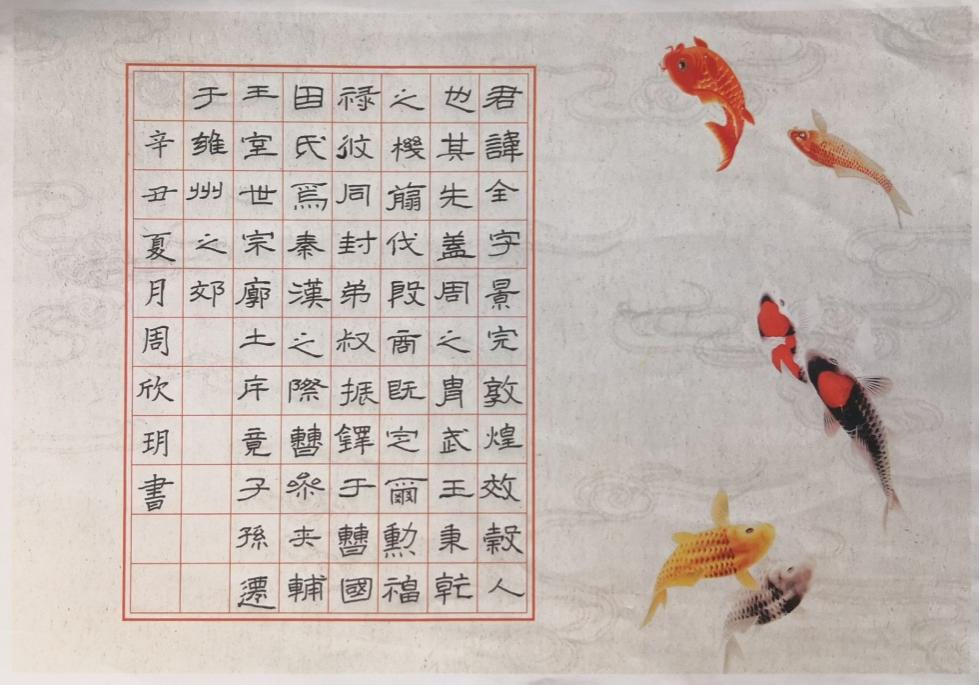 君諱全字景完敦煌效穀人
也其先盖周之胄武王秉乾
之機翦伐殷商既定爾勲福
禄攸同封弟叔振鐸于曹國
因氏焉秦漢之際曹參夾輔
王室世宗廓土斥竟子孫遷
于雍州之郊
辛丑夏月周欣玥書